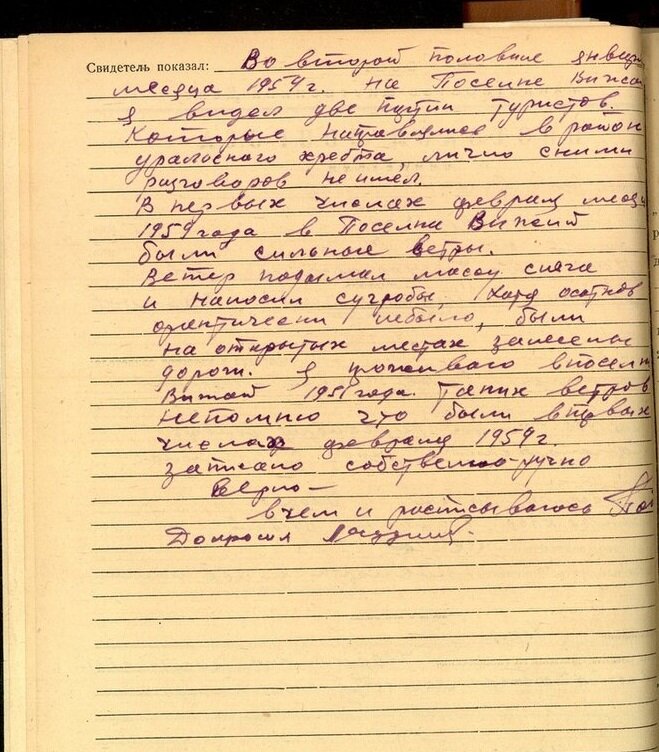 Свидетель показал: Во второй половине январ
месяца 1959 г. на Поселке Вижай
я видел две групии туристов.
Которые направлялись в район
уральского хребта, лично сними
разговоров не имел.
В первых числах февраля меся
1959 года в Поселке Вижай
были сильные ветры.
Ветер подымал массу снега
и наносил сугробы, хотя осатков
фактически небыло, были
на открытых местах занесены
дороги. Я проживаю впоселк
Вижай 1951 года. Таких ветров
непомню что были впервых
числах февраля 1959 г.
записано собственно-ручно
Верно —
вчем и расписываюсь Поп
Допросил